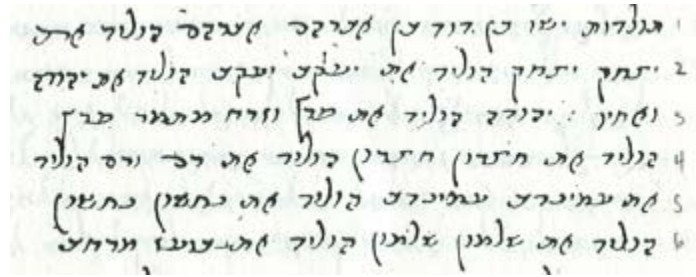 תולדות ישו בן דוד בן אברהם אברהם הוליד את 1
יצחק יצחק הוליד את יעקב יעקב הוליד את יהודה 2
ואחיך : יהודה הוליד את פרץ וזרח מתמר פרץ 3
הוליד את חצרון חצרון הוליד את רם ורם הוליד 4
את עמינדב עמינדב הוליד את נחשון נחשון 5
הוליד את שלמון שלמון הוליד את בועז מרחב 6